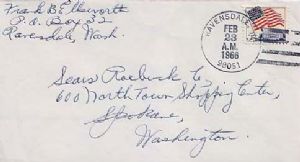 Frank B Ellsworth
P.O. Box 32
Ravensdale, Wash.
RAVENSDALE
FEB
23
A.M.
1966
98051
Sears Roebuck Co,
600 North Town Shopping Center,
Spokane,
Washington.